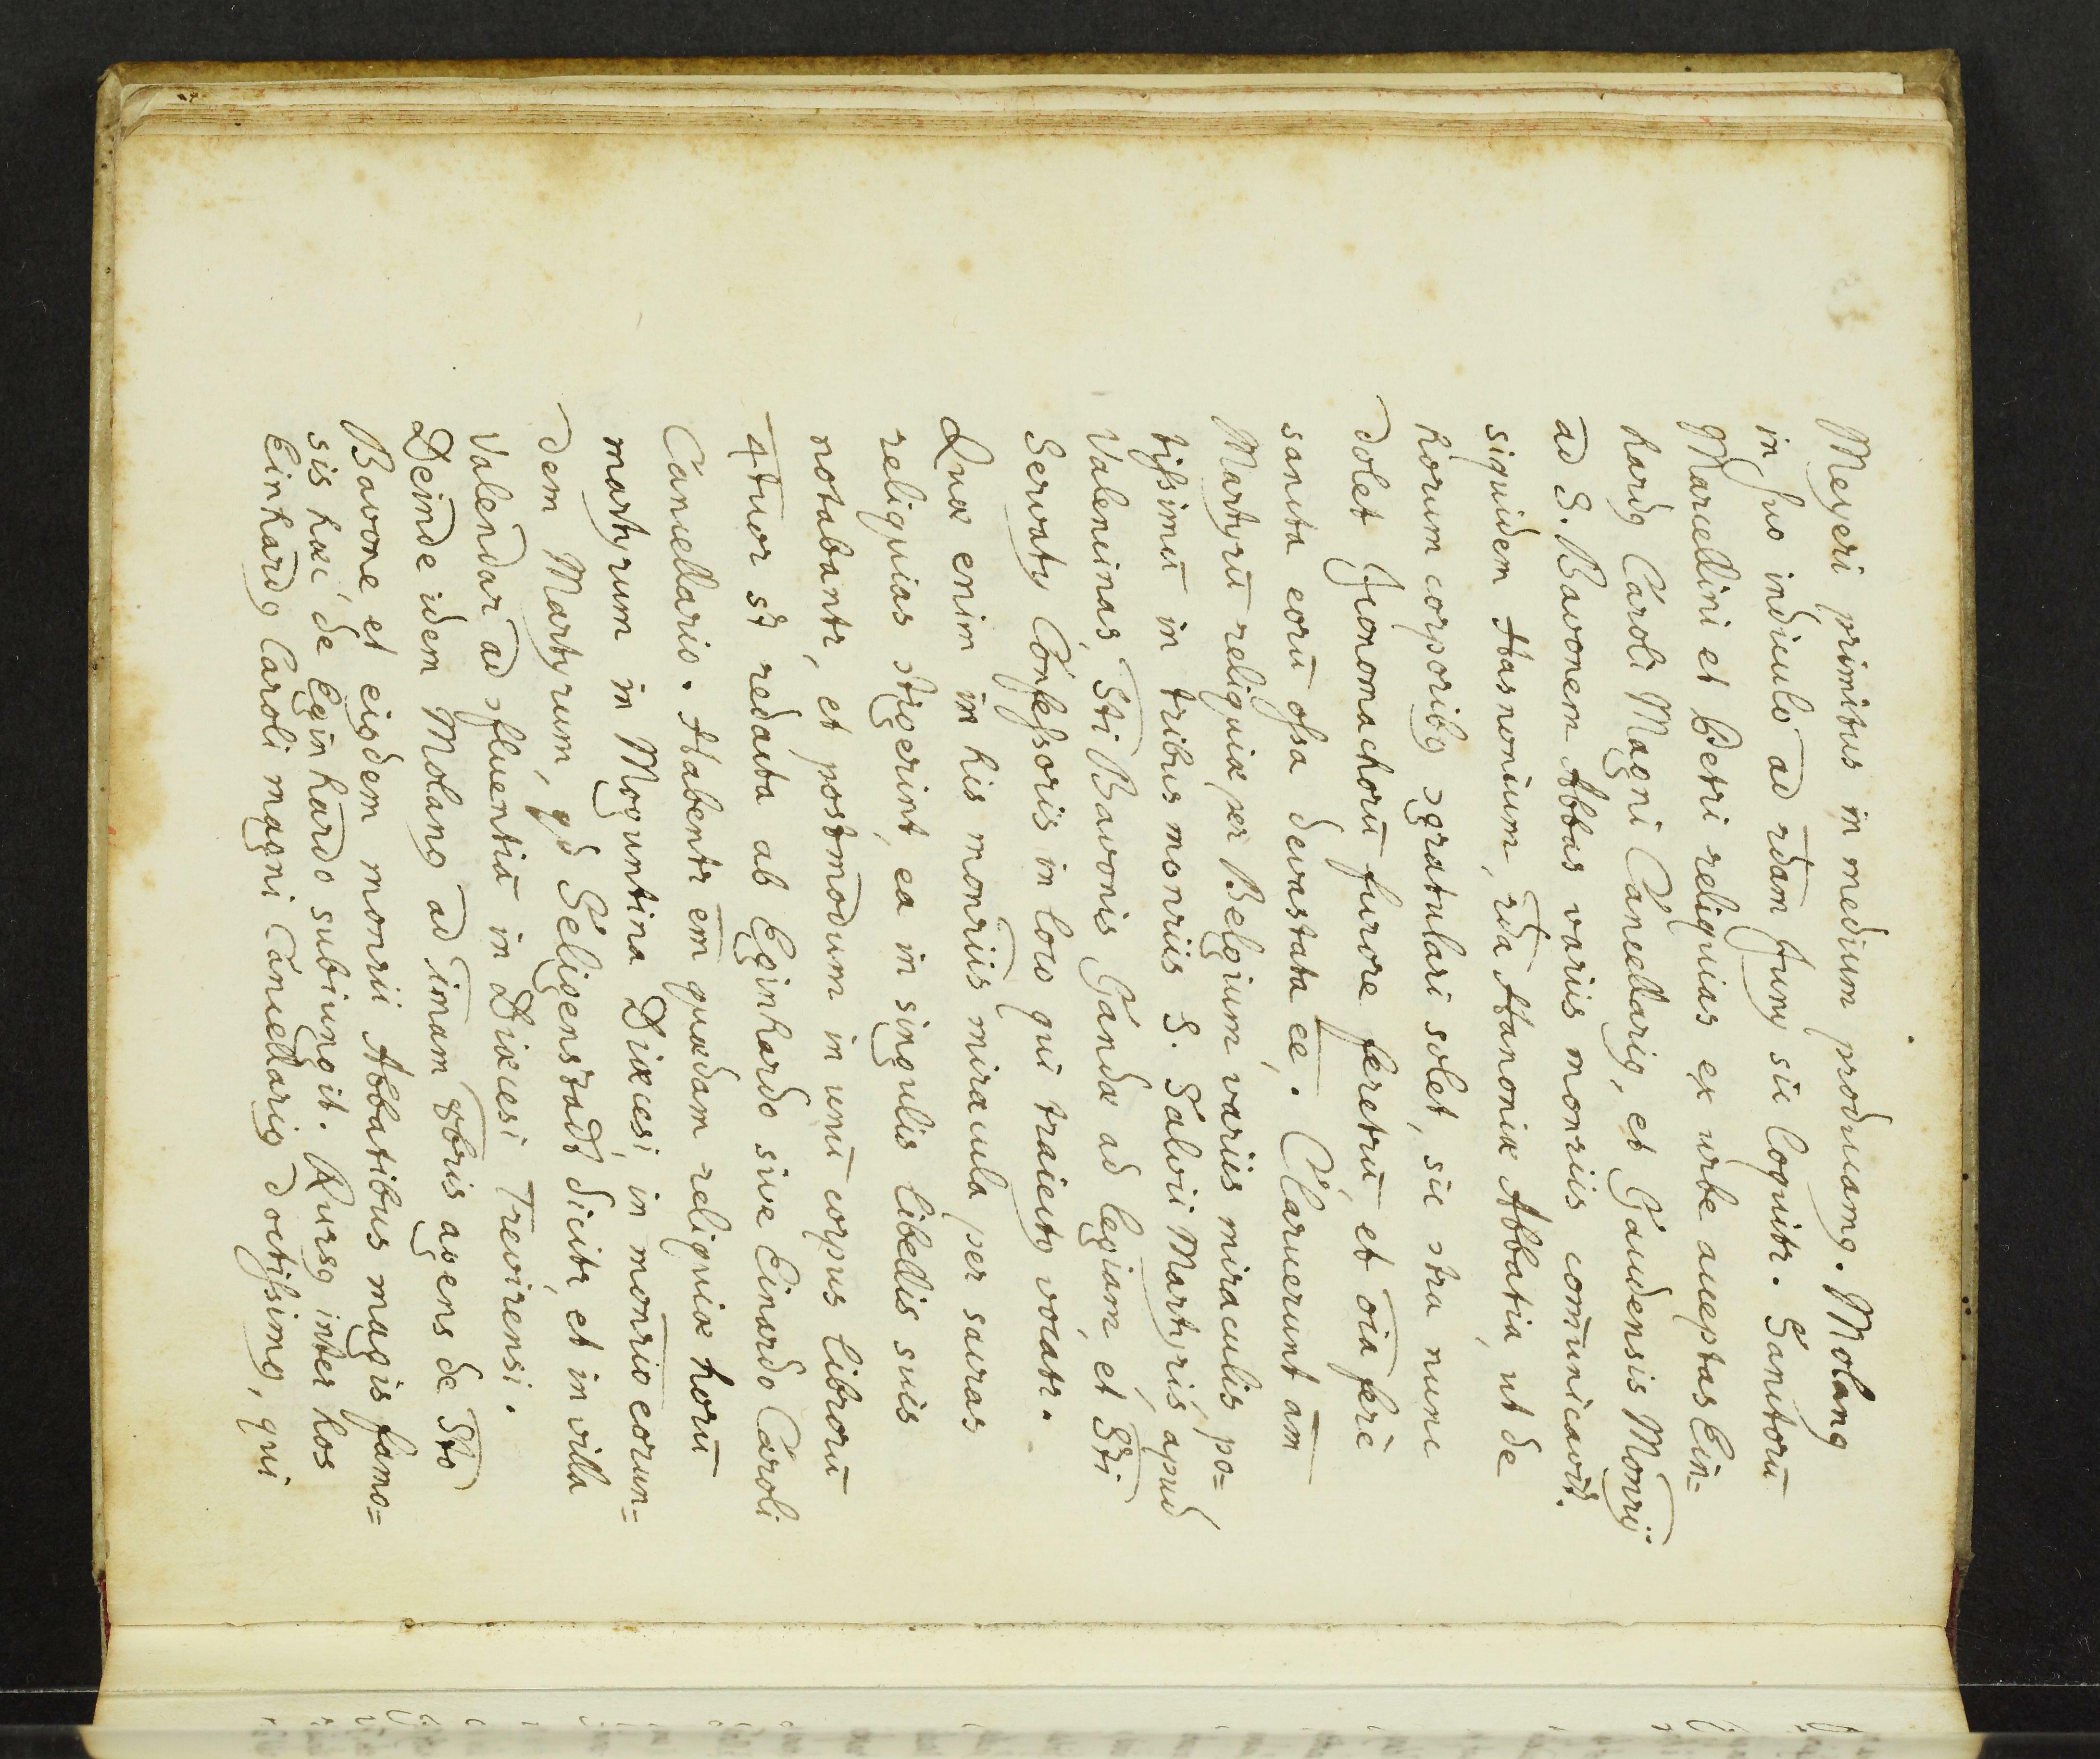 Meyeri primitus in medium producamꝯ. Molanꝯ
in suo indiculo ad 2dam Junij sic loquitr. Sanctorū
Marcellini et Petri reliquias ex urbe acceptas Ein=
hardꝯ Caroli Magni Cancellariꝯ, et Gandensis Monrij
ad S. Bavonem Abbas variis monriis com̄unicavit.
siquidem Hasnonium, 2da Hanoniæ Abbatia, ut de
horum corporibꝯ ɔgratulari solet, sic ɔtra nunc
dolet Jconomachorū furore feretrū, et oīa ferè
sancta eorū ossa devastata eē. Claruerunt aūt
Martyrū reliquiæ per Belgium, variis miraculis po=
tissimū in tribus monriis S. Salvii Martyris, apud
Valencinas, Sti Bavonis Gandæ ad legiam, et Sti
Servatÿ Confessoris in loco qui traiectꝯ vocatr.
Quæ enim in his monriis miracula per sacras
reliquias ɔtigerint, ea in singulis libellis suis
notabantr, et postmodum in unū corpus librorū
4tuor st redacta ab Eginhardo sive Einardo Caroli
Cancellario. Habentr em̄ quædam reliquiæ horū
martyrum in Moguntina Diœcesi, in monrio eorun=
dem Martyrum, qd Seligenstadt dicitr, et in villa
Valendar ad ɔfluentiā in Diœcesi Trevirensi.
Deinde idem Molanꝯ ad imam 8bris agens de Sto
Bavone et eiꝯdem monrii Abbatibus magis famo=
sis hæc, de Eginhardo subiungit. Rursꝯ inter hos
Einhardꝯ Caroli magni Cancellariꝯ doctissimꝯ, qui